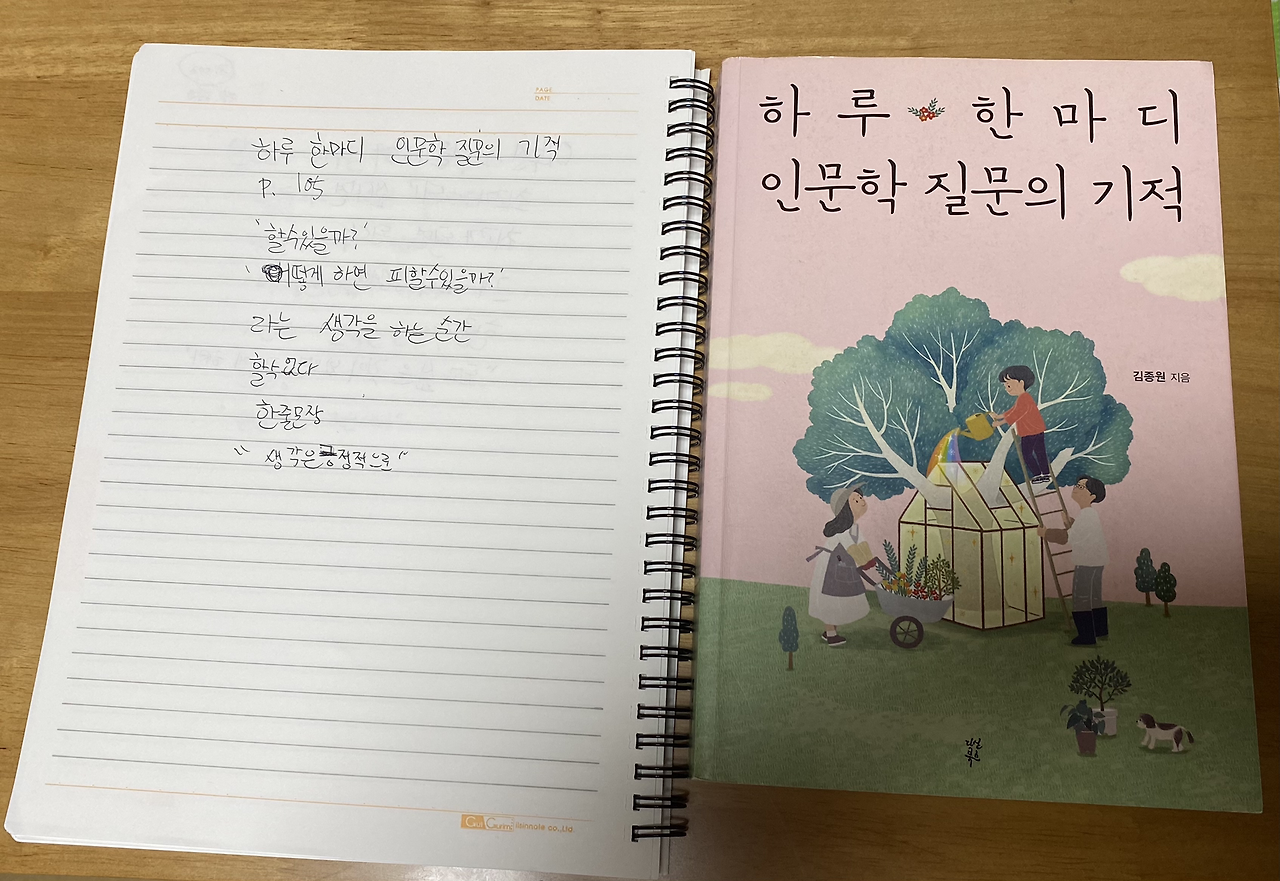 PAGE
DATE
하루 한마디 인문학 질문의 기적
P. 105
'할수있을까?'
'어떻게 하면 피할수있을까?'
라는 생각을 하는 순간
할수없다
한줄문장
"생각은 긍정적으로"
co.,Ltd.
하루 한마디
인문학 질문의 기적
김종원 지음
다산
북스